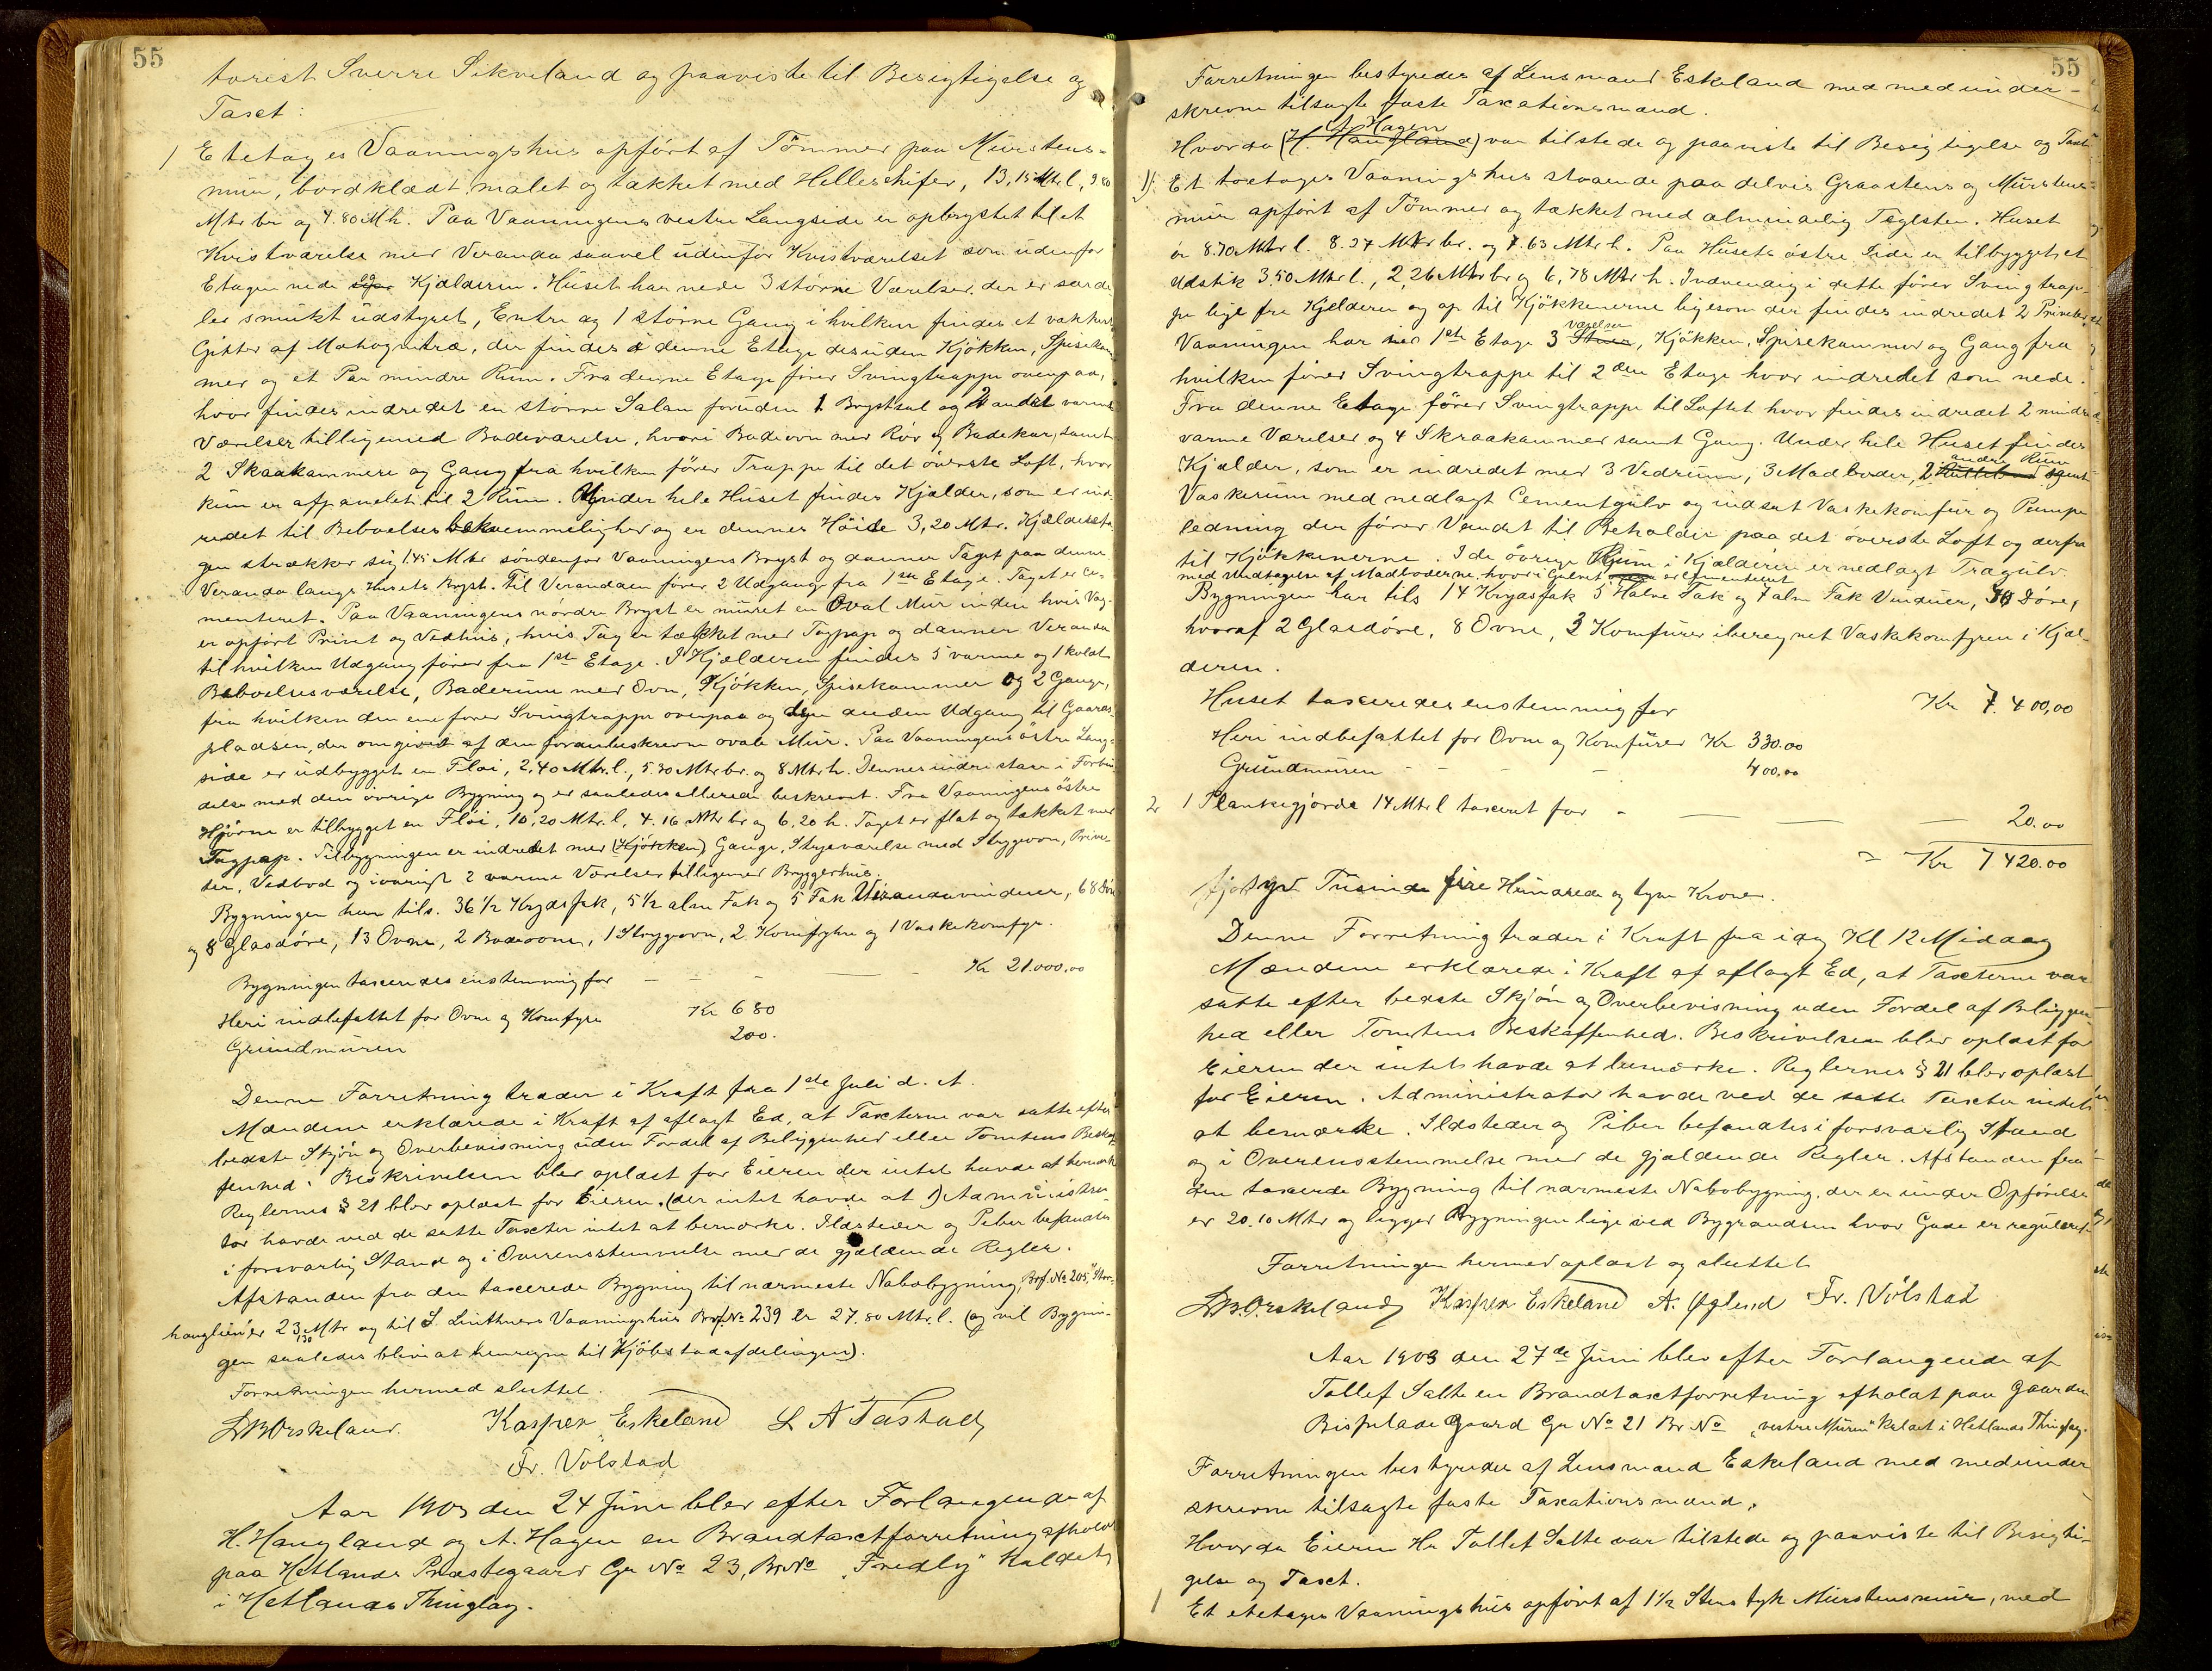 55
torist Sverre Sikveland og paaviste til Besigtigelse og
Taxt:
1 Etetages Vaaningshus opført af Tømmer paa Murstens-
mur, bordklædt malet og tækket med Helleskifer, 13,15 Mtr l, 9.80
Mtr br og 4.80 M h. Paa Vaaningens vestre Langside er opbrystet til et
Kvistværelse med Veranda saavel udenfor Kvistværelset som udenfor
Etagen nede og Kjælderen. Huset har nede 3 større Værelser, der er særde-
les smukt udstyret, Entre og 1 større Gang i hvilken findes et vakkert
Gitter af Mahognitræ, der findes i denne Etage desuden Kjøkken, Spisekam
mer og et Par mindre Rum. Fra denne Etage fører Svingtrappe ovenpaa,
hvor findes indredet en større Salan foruden 1 Brystsal og 2 andre varme
Værelser tilligemed Badeværelse, hvori Badeovn med Rør og Badekar, samt
2 Skaakammere og Gang fra hvilken fører Trappe til det øverste Loft, hvor
kun er afpanelet til 2 Rum. Under hele Huset findes Kjælder, som er ind-
redet til Beboelsesbekvemmelighed og er dennes Høide 3,20 Mtr. Kjældereta
gen strækker sig 1.45 Mtr søndenfor Vaaningens Bryst og danner Taget paa denne
Veranda langs Husets Bryst. Til Verandaen fører 2 Udgange fra 1ste Etage. Taget er ce-
menteret. Paa Vaaningens nordre Bryst er muret en Oval Mur inden hvis Væg
er opført Privet og Vedhus, hvis Tag er tækket med Tagpap og danner Veranda
til hvilken Udgang fører fra 1ste Etage. I Kjælderen findes 5 varme og 1 koldt
Beboelsesværelse, Baderum med Ovn, Kjøkken, Spisekammer og 2 Gange,
fra hvilken den ene fører Svingtrappe ovenpaa og den anden Udgang til Gaards-
pladsen, der omgives af den foranbeskrevne ovale Mur. Paa Vaaningens østre Lang-
side er udbygget en Fløi, 2,40 Mtr. l., 5.30 Mtr br. og 8 Mtr h. Dennes indre staar i Forbin
delse med den øvrige Bygning og er saaledes allerede beskrevet. Fra Vaaningens østre
Hjørne er tilbygget en Fløi, 10,20 Mtr. l, 4.16 Mtr br og 6.20 h. Taget er flat og tækket med
Tagpap. Tilbygningen er indredet med (Kjøkken) Gange, Strygeværelse med Strygeovn, Prive-
der, Vedbod og iøvrigt 2 varme Værelser tilligemed Bryggerhus.
Bygningen har tils. 36 1/2 Krydsfak, 5 1/2 alm Fak og 5 Fak Verandavinduer, 68 Døre
og 8 Glasdøre, 13 Ovne, 2 Badeovne, 1 Strygeovn, 2 Komfyre og 1 Vaskekomfyr.
Bygningen taxeredes enstemmig for — — — Kr 21.000.00
Heri indbefattet for Ovne og Komfyre Kr 680
Grundmuren 200.
Denne Forretning træder i Kraft fra 1ste Juli d. A.
Mændene erklærede i Kraft af aflagt Ed, at Taxterne var satte efter
bedste Skjøn og Overbevisning uden Fordel af Beliggenhed eller Tomtens Beskaf
fenhed. Beskrivelsen blev oplæst for Eieren der intet havde at bemærk
Reglernes § 21 blev oplæst for Eieren. (der intet havde at) Administra-
tor havde ved de satte Taxter intet at bemærke. Ildsteder og Piber befandtes
i forsvarlig Stand og i Overensstemmelse med de gjældende Regler.
Afstanden fra den taxerede Bygning til nærmeste Nabobygning, Brf. No 205, "Stor-
hauglien" er 23.130 Mtr og til S. Linthners Vaaningshus Brf. No 239 er 27.80 Mtr. l. (og vil Bygnin-
gen saaledes blive at henregne til Kjøbstadafdelingen).
Forretningen hermed sluttet.
LB Orskeland. Kasper Eskeland L A Tastad
Fr. Volstad
Aar 1903 den 24 Juni blev efter Forlangende af
H. Haugland og A. Hagen en Brandtaxtforretning afholdt
paa Hetlands Præstegaard Gr No 23, Br No "Fredly" kaldet,
i Hetlands Thinglag.
55
Forretningen bestyredes af Lensmand Eskeland med medunder-
skrevne tilsagte faste Taxationsmænd.
A Hagen
Hvorda (H. Haugland) var tilstede og paaviste til Besigtigelse og Taxt
1). Et toetages Vaaningshus staaende paa delvis Graastens og Murstens-
mur opført af Tømmer og tækket med almindelig Teglsten. Huset
er 8.70 Mtr l. 8.27 Mtr br. og 7.63 Mtr h. Paa Husets østre Side er tilbygget et
Udstik 3.50 Mtr l., 2,26 Mtr br og 6,78 Mtr h. Indvendig i dette fører Svingtrap-
pe lige fra Kjelderen og op til Kjøkkenerne ligesom der findes indredet 2 Priveter.
værelser
Vaaningen har ved 1ste Etage 3 Stuer, Kjøkken, Spisekammer og Gang fra
hvilken fører Svingtrappe til 2den Etage hvor indredet som nede.
Fra denne Etage fører Svingtrappe til Loftet hvor findes indredet 2 mindre
varme Værelser og 4 Skraakammer samt Gang. Under hele Huset findes
andre Rum
Kjælder, som er indredet med 3 Vedrum, 3 Madboder, 2 samt
Vaskerum med nedlagt Cementgulv og indsat Vaskekomfur og Pumpe
ledning der fører Vandet til Beholder paa det øverste Loft og derfra
til Kjøkkenerne. I de øvrige Rum i Kjælderen er nedlagt Trægulv
med undtagelse af Madboderne hvori Gulvet er cementeret
Bygningen har tils 14 Krydsfak 5 Halve Fak og 7 alm Fak Vinduer, Døre,
hvoraf 2 Glasdøre, 8 Ovne, 3 Komfurer iberegnet Vaskkomfyren i Kjæl-
deren.
Huset taxeredes enstemmig for Kr 7.400,00
Heri indbefattet for Ovne og Komfurer Kr 330.00
Grundmuren - - - 400.00
2. 1 Plankegjærde 14 Mtr l taxeret for - — — — 20.00
= Kr 7420.00
syv Tusinde fire Hundrede og tyve Kroner.
Denne Forretning træder i Kraft fra idag Kl 12 Middag
Mændene erklærede i Kraft af aflagt Ed, at Taxterne var
satte efter bedste Skjøn og Overbevisning uden Fordel af Beliggen-
hed eller Tomtens Beskaffenhed. Beskrivelsen blev oplæst for
Eieren der intet havde at bemærke. Reglernes § 21 blev oplæst
for Eieren. Administrator havde ved de satte Taxter intet
at bemærke. Ildsteder og Piber befandtes i forsvarlig Stand
og i Overensstemmelse med de gjældende Regler. Afstanden fra
den taxerede Bygning til nærmeste Nabobygning, der er under Opførelse
er 20.10 Mtr og ligger Bygningen lige ved Bygrændsen hvor Gade er reguleret.
Forretningen hermed oplæst og sluttet
LB. Orskeland Kasper Eskeland A. Øglend Fr. Volstad
Aar 1903 den 27de Juni blev efter Forlangende af
Tollef Salte en Brandtaxtforretning afholdt paa Gaarden
Bispeladegaard Gr No 21 Br No "vestre Muren" kaldet i Hetlands Thinglag.
Forretningen bestyredes af Lensmand Eskeland med medunder
skrevne tilsagte faste Taxationsmænd.
Hvorda Eieren Hr Tollef Salte var tilstede og paaviste til Besigti-
gelse og Taxt.
1 Et etetages Vaaningshus opført af 1 1/2 Stens tyk Murstensmur, med